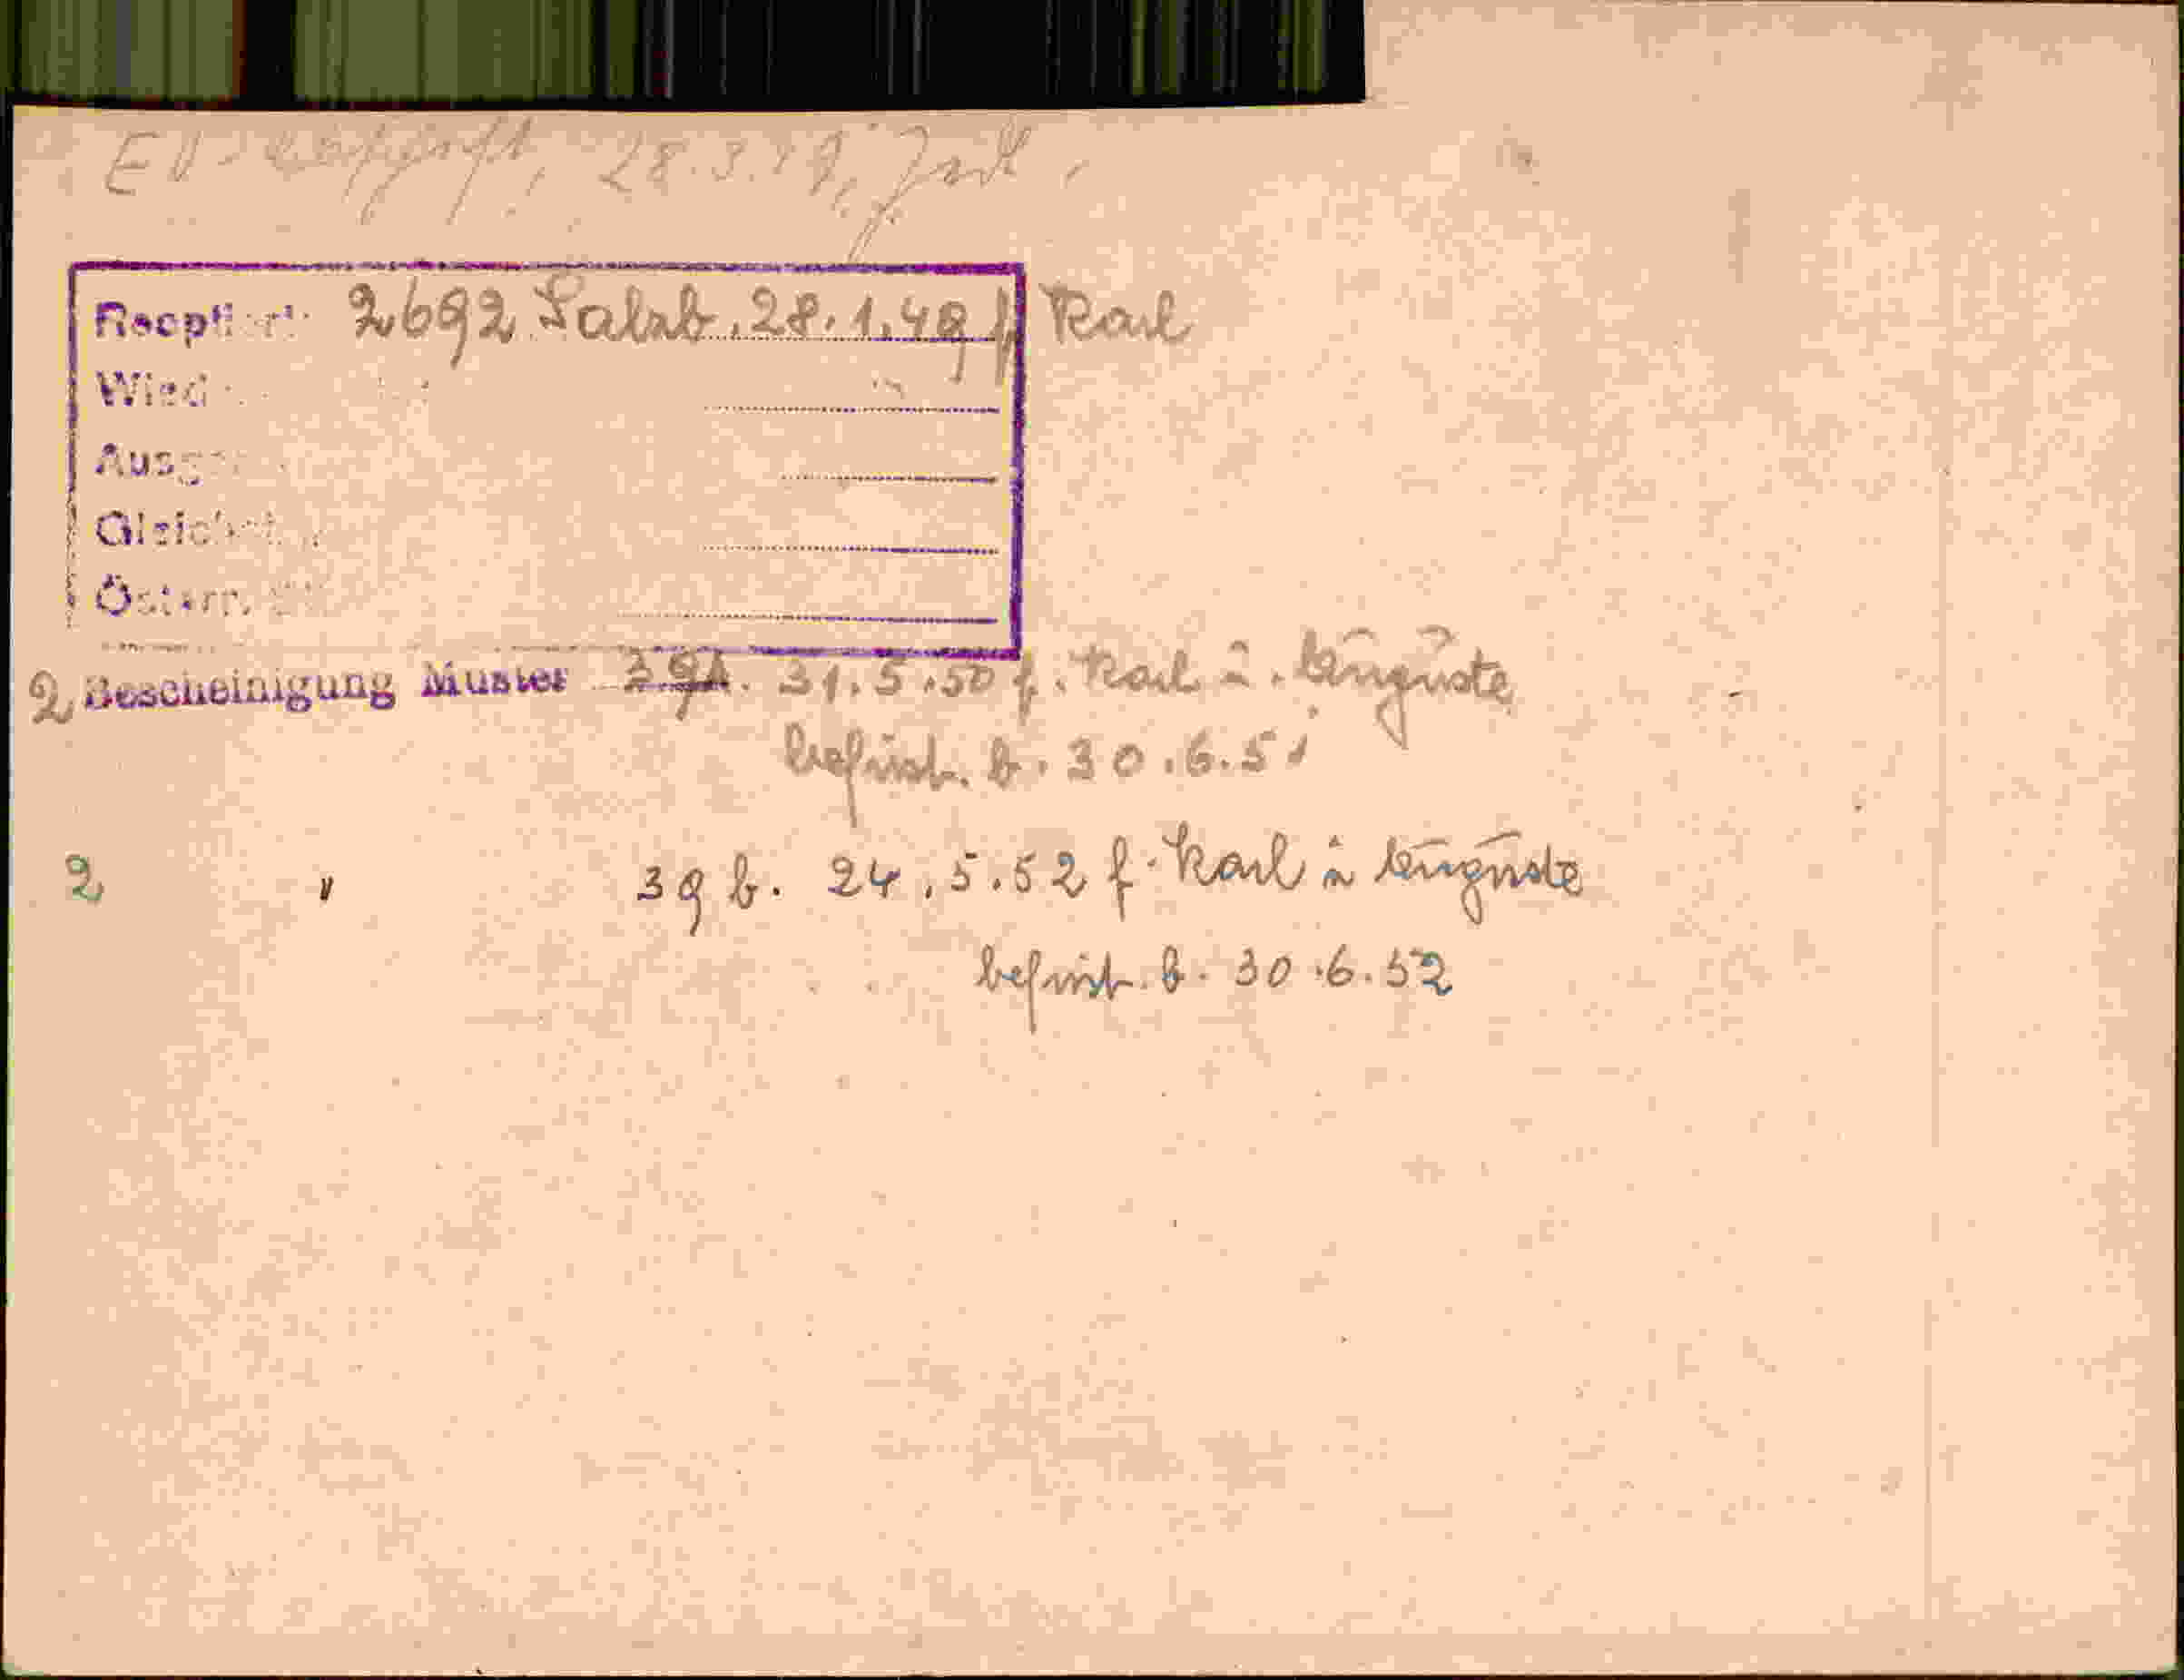 EV- 28.3.49,
Reoptiert: 2692 Salzb. 28.1.49 f. Karl
Wied
Ausg
Gleich
Österr. St
2 Bescheinigung Muster 39A. 31.5.50 f. Karl ü. Auguste
befrist. b. 30.6.51
2 " 39 b. 24.5.52 f. Karl ü Auguste
befrist. b. 30.6.52